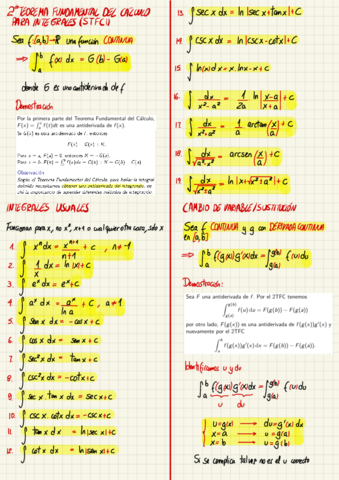 2º TEOREMA FUNDAMENTAL DEL CÁLCULO
PARA INTEGRALES (STFCI)
Sea f:[a,b]→ℝ una función CONTINUA
⟹ ∫_a^b f(x) dx = G(b) - G(a)
donde G es una antiderivada de f
Demostración
Por la primera parte del Teorema Fundamental del Cálculo,
es una antiderivada de f(x).
Si G(x) es otra antiderivada de f, entonces
Observación
Según el Teorema Fundamental del Cálculo, para hallar la integral
definida necesitamos obtener una antiderivada del integrando, de
ahí la importancia de aprender diferentes métodos de integración
INTEGRALES USUALES
Funcionan para x, no x², x+1 o cualquier otra cosa, sólo x
1. ∫ xⁿ dx = xⁿ⁺¹/(n+1) + C , n≠-1
2. ∫ 1/x dx = ln|x| + C
3. ∫ eˣ dx = eˣ + C
4. ∫ aˣ dx = aˣ/ln a + C , a≠1
5. ∫ sen x dx = -cos x + C
6. ∫ cos x dx = sen x + C
7. ∫ sec² x dx = tan x + C
8. ∫ csc² x dx = -cot x + C
9. ∫ sec x . tan x dx = sec x + C
10. ∫ csc x . cot x dx = -csc x + C
11. ∫ tan x dx = ln|sec x| + C
12. ∫ cot x dx = ln|sen x| + C
13. ∫ sec x dx = ln|sec x + tan x| + C
14. ∫ csc x dx = ln|csc x - cot x| + C
15. ∫ ln(x) dx = x . ln x - x + C
16. ∫ dx/(x² - a²) = 1/2a ln|(x-a)/(x+a)| + C
17. ∫ dx/(x² + a²) = 1/a arctan(x/a) + C
18. ∫ dx/√(a² - x²) = arcsen(x/a) + C
19. ∫ dx/√(x² ± a²) = ln|x + √(x² ± a²)| + C
CAMBIO DE VARIABLE/SUSTITUCIÓN
Sea f CONTINUA y g con DERIVADA CONTINUA
en [a,b]
⟹ ∫_a^b f(g(x)) g'(x) dx = ∫_g(a)^g(b) f(u) du
Demostración:
Sea F una antiderivada de f. Por el 2TFC tenemos
∫_g(a)^g(b) f(u) du = F(g(b)) − F(g(a))
por otro lado, F(g(x)) es una antiderivada de f(g(x))g'(x) y
nuevamente por el 2TFC
∫_a^b f(g(x))g'(x) dx = F(g(b)) − F(g(a)).
Identificamos u y du
∫_a^b f(g(x)) g'(x) dx = ∫_g(a)^g(b) f(u) du
u du
u = g(x) → du = g'(x) dx
x = a → u = g(a)
x = b → u = g(b)
Si se complica tal vez no es el u correcto